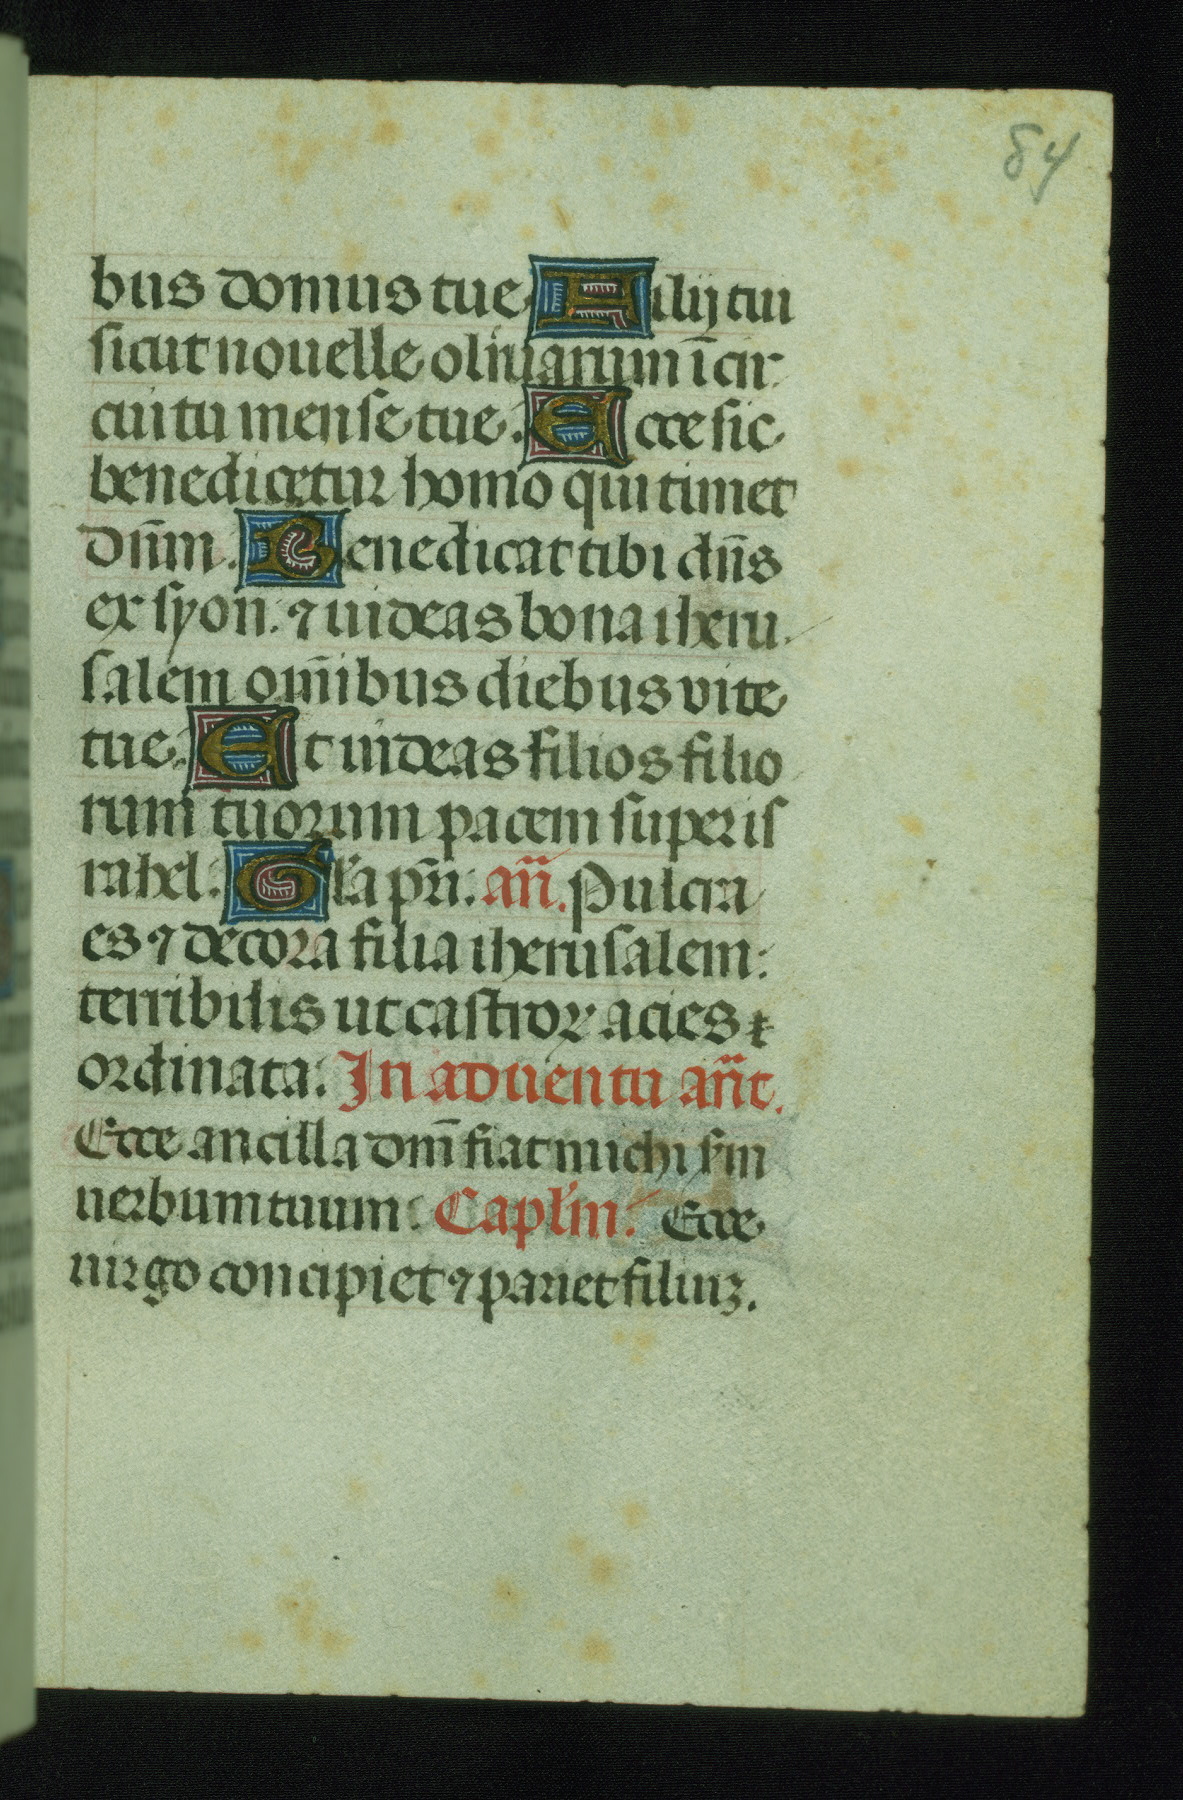 84
bus domus tue. Filij tui
sicut nouelle oliuarum ī cir
cuitu mense tue. Ecce sic
benedicetur homo qui timet
dn̄m. Benedicat tibi dn̄s
ex syon: ⁊ uideas bona iheru
salem om̄ibus diebus vite
tue. Et uideas filios filio
rum tuorum pacem super is
rahel. Gl̄a pr̄i. an̄. Pulcra
es ⁊ decora filia iherusalem:
terribilis ut castroꝝ acies
ordinata. In aduentu an̄t.
Ecce ancilla dn̄i fiat michi s̄m
uerbum tuum. Capl̄m. Ecce
uirgo concipiet ⁊ pariet filiuꝫ.